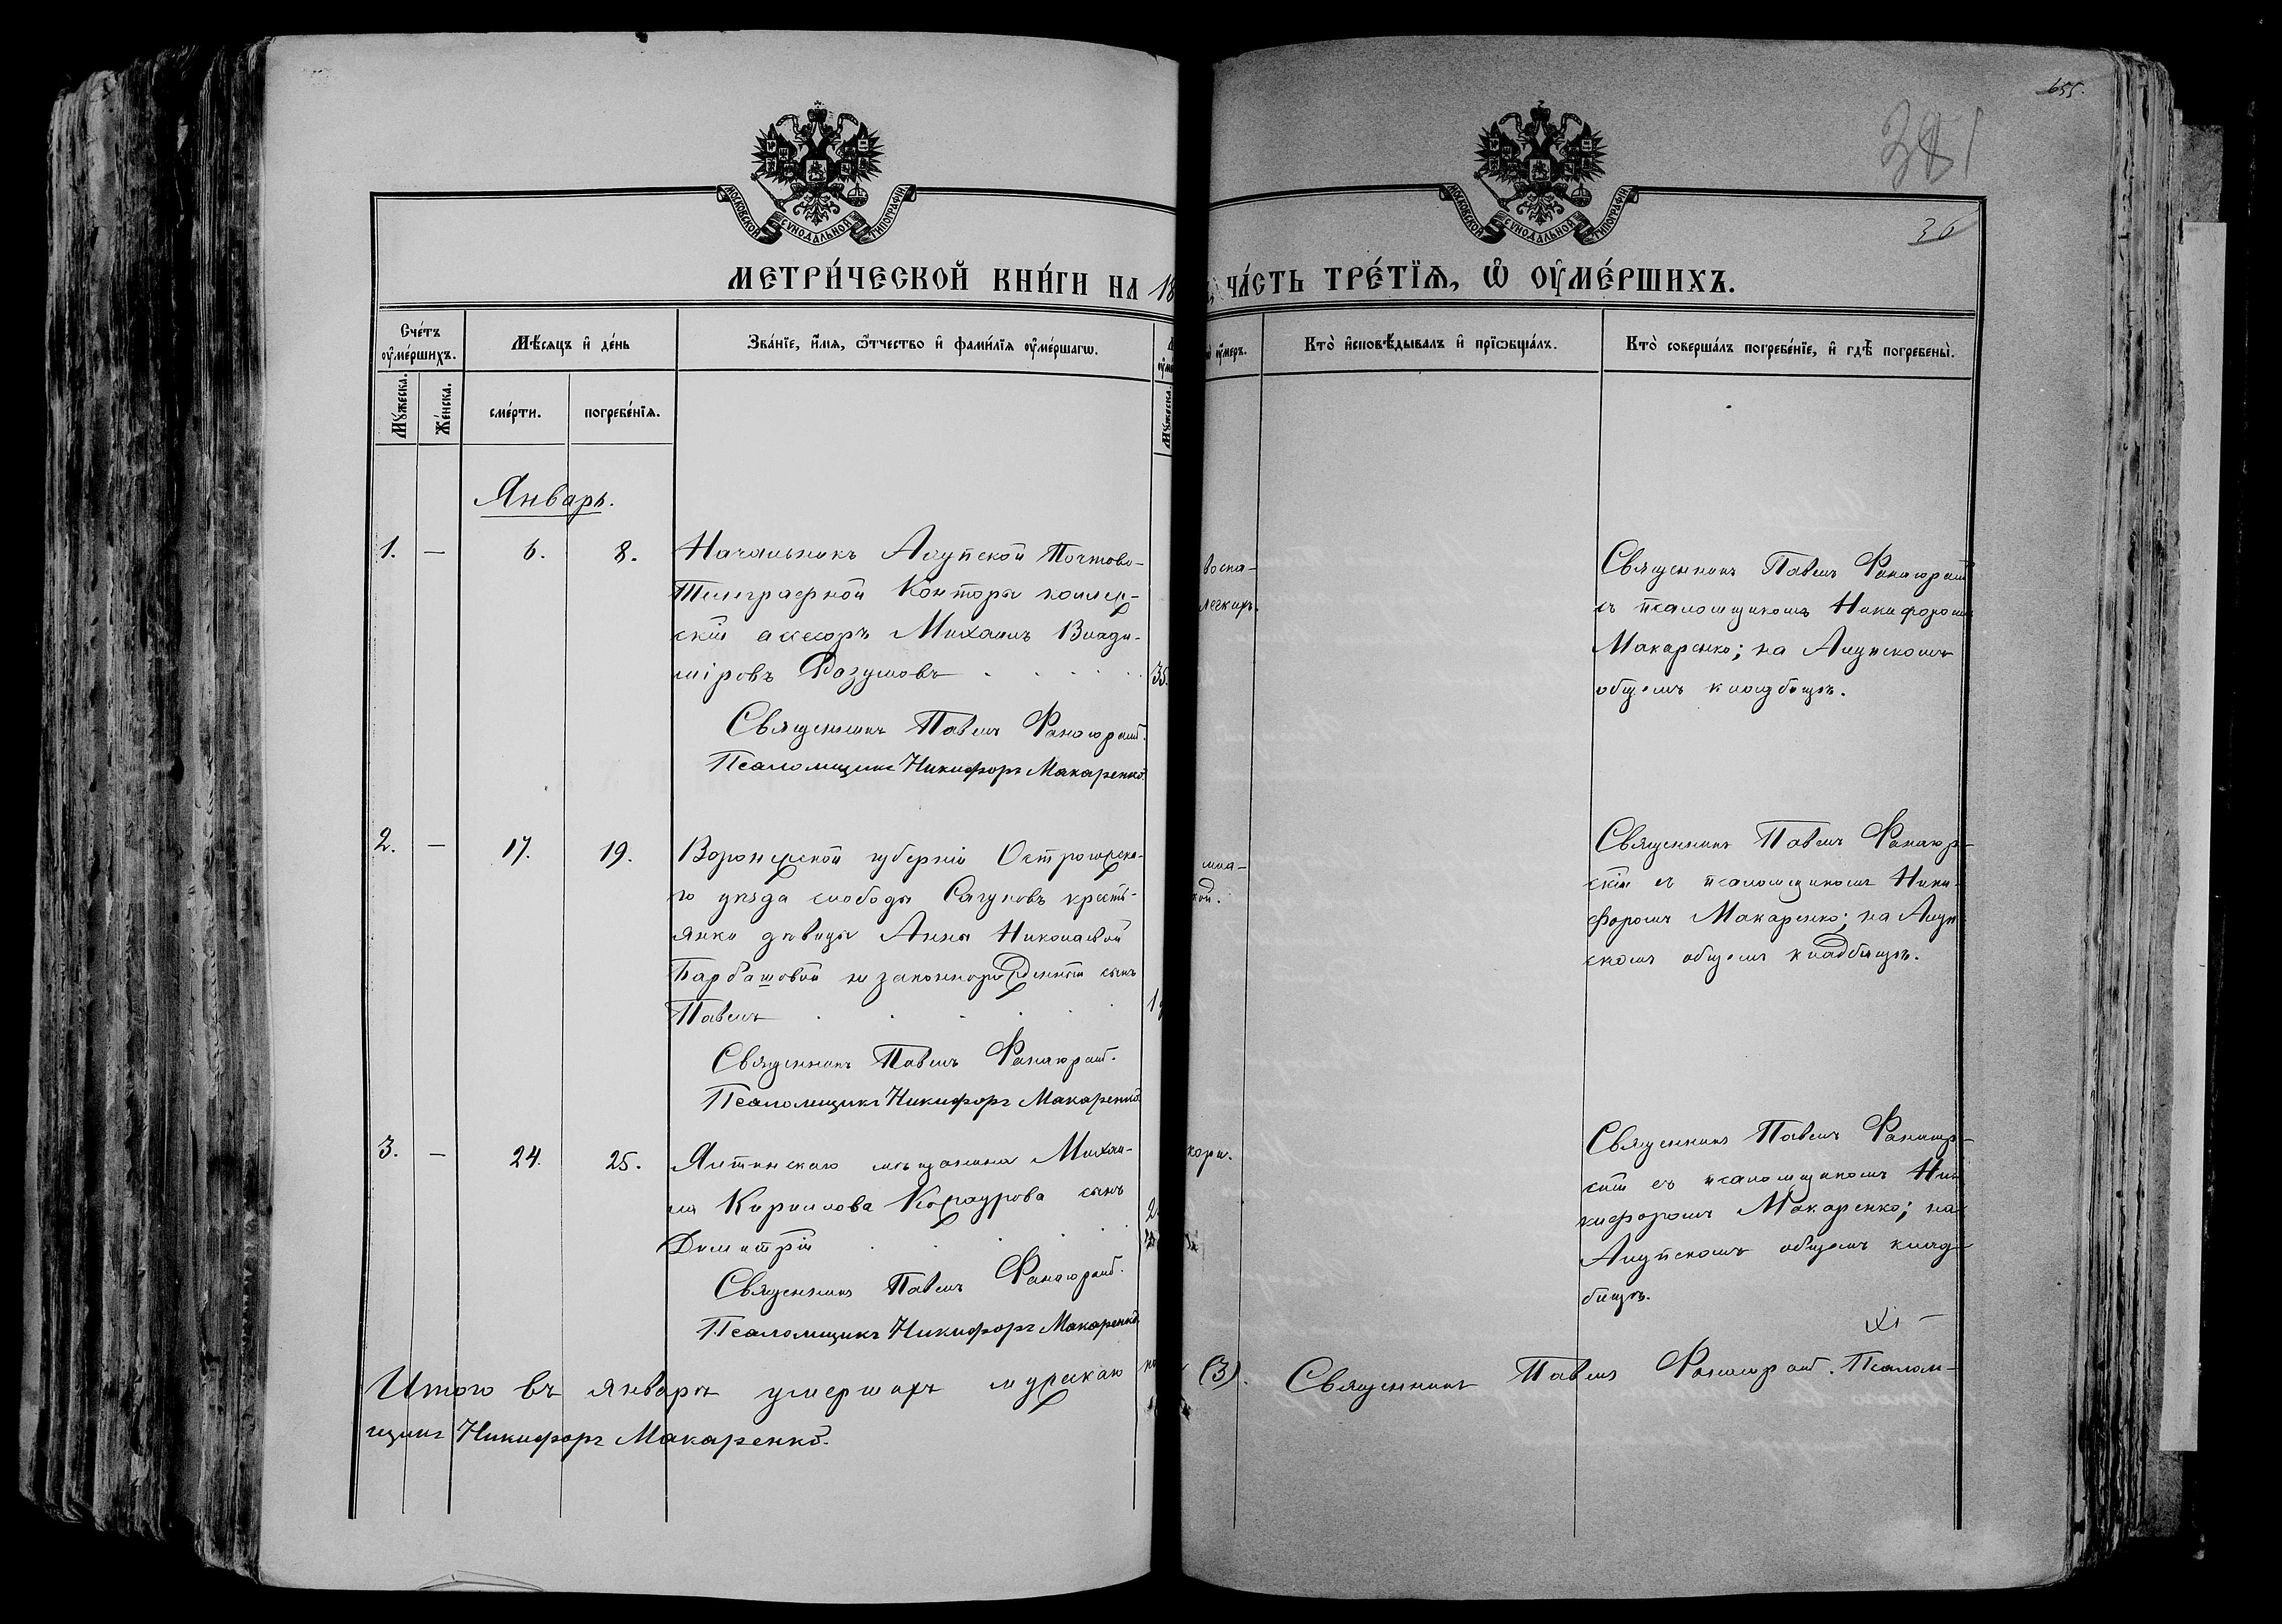 655.
381
36
МОСКОВСКОЙ СѴНОДАЛЬНОЙ ТИПОГРАФІИ
МОСКОВСКОЙ СѴНОДАЛЬНОЙ ТИПОГРАФІИ
МЕТРИ́ЧЕСКОЙ КНИ́ГИ НА 18
ЧА́СТЬ ТРЕ́ТЇѦ, Ѡ҆ ОУ҆МЕ́РШИХЪ.
Сче́тъ оу҆ме́ршихъ.
Мꙋ́жеска.
Же́нска.
Мѣ́сяцъ и҆ де́нь
сме́рти.
погребе́нїѧ.
Зва́нїе, и҆́мѧ, ѻ҆́тчество и҆ фами́лїѧ оу҆ме́ршагѡ.
Мꙋ́жеска.
оу҆́меръ.
Кто̀ и҆сповѣ́дывалъ и҆ прїѡбща́лъ.
Кто̀ соверша́лъ погребе́нїе, и҆ гдѣ̀ погребены̀.
Январь.
1. — 6. 8.
Начальникъ Алупской Почтово-
Телеграфной Конторы коллеж-
скій асесоръ Михаилъ Влади-
міровъ Розумовъ
35.
Священникъ Павелъ Фанагорскій.
Псаломщикъ Никифоръ Макаренко.
воспа-
легкихъ.
Священникъ Павелъ Фанагорскій
съ псаломщикомъ Никифоромъ
Макаренко; на Алупскомъ
общемъ кладбищѣ.
2. — 17. 19.
Воронежской губерніи Острогожска-
го уѣзда слободы Сагуновъ кресть-
янки дѣвицы Анны Николаевой
Барбашовой незаконнорожденный сынъ
Павелъ
1
Священникъ Павелъ Фанагорскій.
Псаломщикъ Никифоръ Макаренко.
Священникъ Павелъ Фанагор-
скій съ псаломщикомъ Ники-
форомъ Макаренко; на Алуп-
скомъ общемъ кладбищѣ.
3. — 24. 25.
Ялтинскаго мѣщанина Михаи-
ла Кирилова Кожаурова сынъ
Димитрій
2
Священникъ Павелъ Фанагорскій.
Псаломщикъ Никифоръ Макаренко.
кори.
Священникъ Павелъ Фанагор-
скій съ псаломщикомъ Ни-
кифоромъ Макаренко; на
Алупскомъ общемъ клад-
бищѣ.
Итого въ январѣ умершихъ мужскаго
(3). Священникъ Павелъ Фанагорскій. Псалом-
щикъ Никифоръ Макаренко.